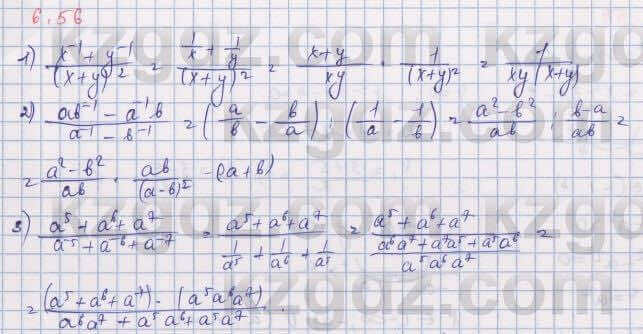 6.56
1) \frac{x^{-1}+y^{-1}}{(x+y)^2} = \frac{\frac{1}{x}+\frac{1}{y}}{(x+y)^2} = \frac{x+y}{xy} \cdot \frac{1}{(x+y)^2} = \frac{1}{xy(x+y)}
2) \frac{ab^{-1}-a^{-1}b}{a^{-1}-b^{-1}} = (\frac{a}{b}-\frac{b}{a}) : (\frac{1}{a}-\frac{1}{b}) = \frac{a^2-b^2}{ab} : \frac{b-a}{ab} =
= \frac{a^2-b^2}{ab} \cdot \frac{ab}{(a-b)^2} -(a+b)
3) \frac{a^5+a^6+a^7}{a^{-5}+a^{-6}+a^{-7}} = \frac{a^5+a^6+a^7}{\frac{1}{a^5}+\frac{1}{a^6}+\frac{1}{a^5}} = \frac{a^5+a^6+a^7}{\frac{a^6a^7+a^7a^5+a^5a^6}{a^5a^6a^7}} =
= \frac{(a^5+a^6+a^7) \cdot (a^5a^6a^7)}{a^6a^7+a^5a^6+a^5a^7}
kzgdz.com